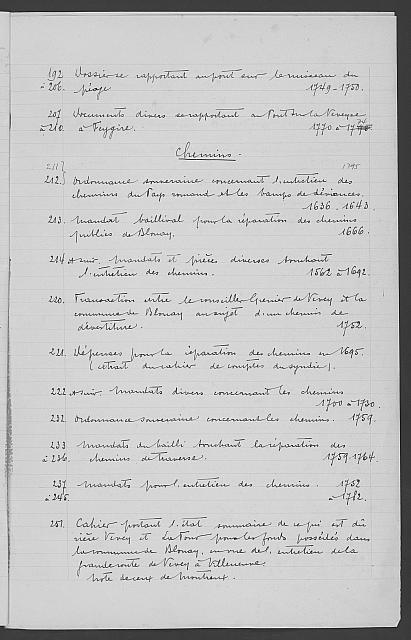 192 Dossier se rapportant au pont sur le ruisseau du
à 206. péage 1749-1750.
207 Documents divers se rapportant au Pont sur la Veveyse
à 210. à Feygire. 1770 à 1774
Chemins.
211} 1795
212.} Ordonnance souveraine concernant l'entretien des
chemins du Pays romand et les
1636. 1643.
213. Mandat baillival pour la réparation des chemins
publics de Blonay. 1666.
214 & suiv. Mandats et pièces diverses touchant
l'entretien des chemins. 1562 à 1692.
220. Transaction entre le conseiller Grenier de Vevey et la
commune de Blonay au sujet d'un chemin de
dévestiture. 1752.
221. Dépenses pour la réparation des chemins en 1695.
(extrait du cahier de comptes du syndic).
222 & suiv. Mandats divers concernant les chemins
1700 à 1730.
232. Ordonnance souveraine concernant les chemins. 1759.
233 Mandats du bailli touchant la réparation des
à 236. chemins de traverse. 1759-1764.
237 Mandats pour l'entretien des chemins. 1752
à 245. à 1782.
251. Cahier portant l'état sommaire de ce qui est dû
rière Vevey et La Tour pour les fonds possédés dans
la commune de Blonay, en vue de l'entretien de la
grande route de Vevey à Villeneuve.
Note de ceux de Montreux.